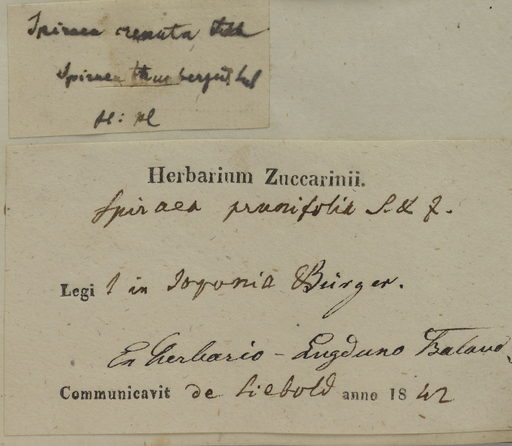 Spiraea crenata
Spiraea thunbergii
Herbarium Zuccarinii.
Spiraea prunifolia S. & Z.
Legit in Japonia Bürger.
Ex herbario - Lugduno Batavo
Communicavit de Siebold anno 1842